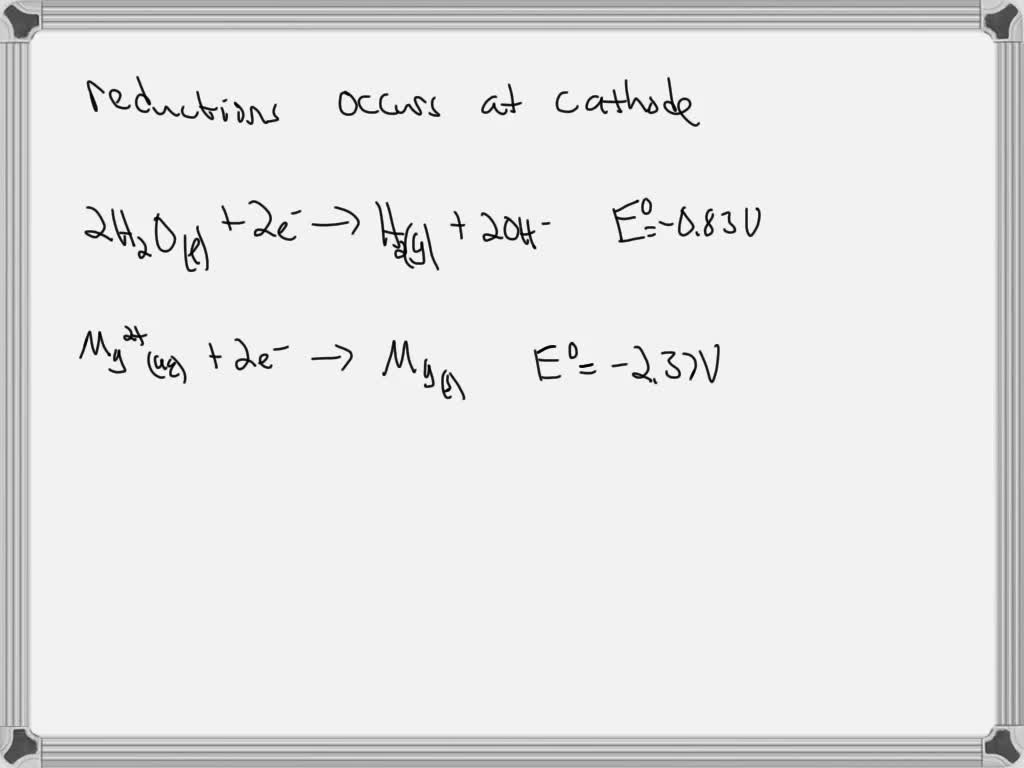 reductions occurs at cathode
2H₂O(l) + 2e⁻ → H₂(g) + 2OH⁻ E⁰=-0.83V
Mg²⁺(aq) + 2e⁻ → Mg(s) E⁰= -2.37V